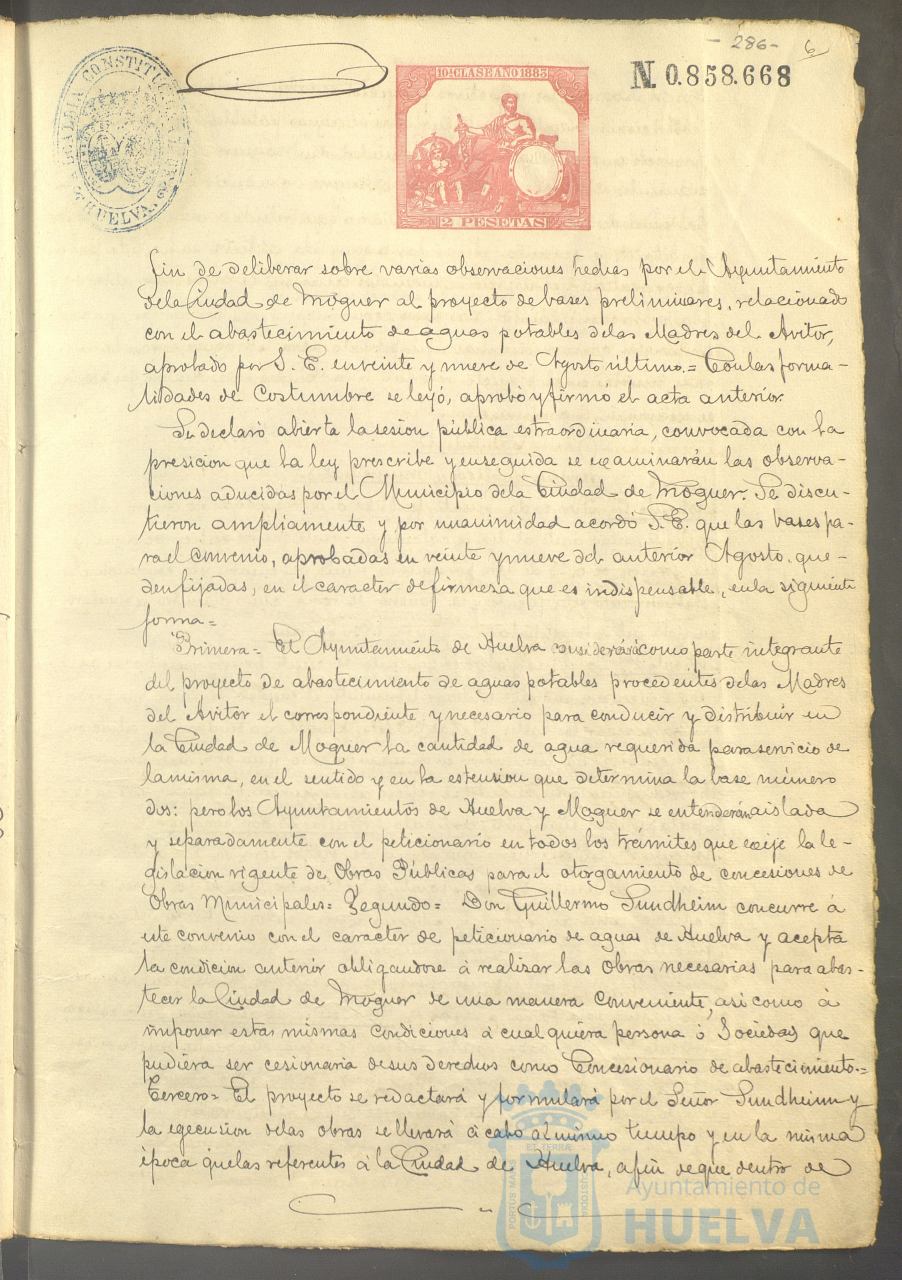 - 286 - 6
ALCALDIA CONSTITUCIONAL HUELVA
10ª CLASE AÑO 1883
N. 0.858.668
2 PESETAS
fin de deliberar sobre varias observaciones hechas por el Ayuntamiento
de la Ciudad de Moguer al proyecto de bases preliminares, relacionado
con el abastecimiento de aguas potables de las Madres del Avitor,
aprobado por S. E. en veinte y nueve de Agosto último.= Con las forma-
lidades de Costumbre se leyó, aprobó y firmó el acta anterior.
Se declaró abierta la sesion pública estraordinaria, convocada con la
presicion que la ley prescribe y enseguida se examinarán las observa-
ciones aducidas por el Municipio de la Ciudad de Moguer. Se discu-
tieron ampliamente y por unanimidad acordó S. E. que las bases pa-
ra el convenio, aprobadas en veinte y nueve del anterior Agosto. que-
den fijadas, en el caracter de firmeza que es indispensable, en la siguiente
forma=
Primera= El Ayuntamiento de Huelva considerará como parte integrante
del proyecto de abastecimiento de aguas potables procedentes de las Madres
del Avitor el correspondiente y necesario para conducir y distribuir en
la Ciudad de Moguer la cantidad de agua requerida para servicio de
la misma, en el sentido y en la estension que determina la base número
dos: pero los Ayuntamientos de Huelva y Moguer se entenderán aislada
y separadamente con el peticionario en todos los trámites que exije la le-
gislacion vigente de Obras Públicas para el otorgamiento de concesiones de
Obras Municipales= Segundo= Don Guillermo Sundheim concurre á
este convenio con el caracter de peticionario de aguas de Huelva y acepta
la condicion anterior obligandose á realizar las Obras necesarias para abas-
tecer la Ciudad de Moguer de una manera conveniente, asi como á
imponer estas mismas condiciones á cualquiera persona ó Sociedad que
pudiera ser cesionaria de sus derechos como Concesionario de abastecimiento.=
Tercero= El proyecto se redactará y formulará por el Señor Sundheim y
la egecusion de las obras se llevará á cabo al mismo tiempo y en la misma
época que las referentes á la Ciudad de Huelva, a fin de que dentro de
PORTUS MARIS ET TERRÆ CUSTODIA
Ayuntamiento de
HUELVA